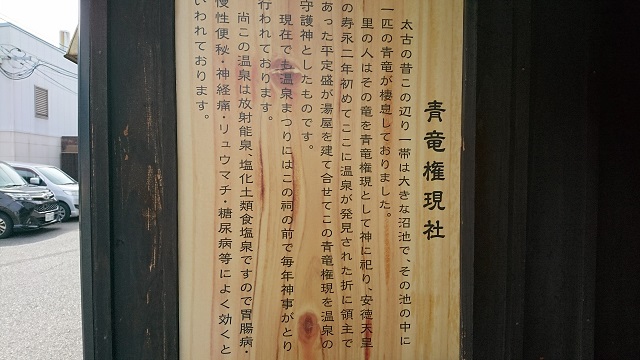 青竜権現社
太古の昔この辺り一帯は大きな沼池で、その池の中に
一匹の青竜が棲息しておりました。
里の人はその竜を青竜権現として神に祀り、安徳天皇
の寿永二年初めてここに温泉が発見された折に領主で
あった平定盛が湯屋を建て合せてこの青竜権現を温泉の
守護神としたものです。
現在でも温泉まつりにはこの祠の前で毎年神事がとり
行われております。
尚この温泉は放射能泉、塩化土類食塩泉ですので胃腸病・
慢性便秘・神経痛・リュウマチ・糖尿病等によく効くと
いわれております。